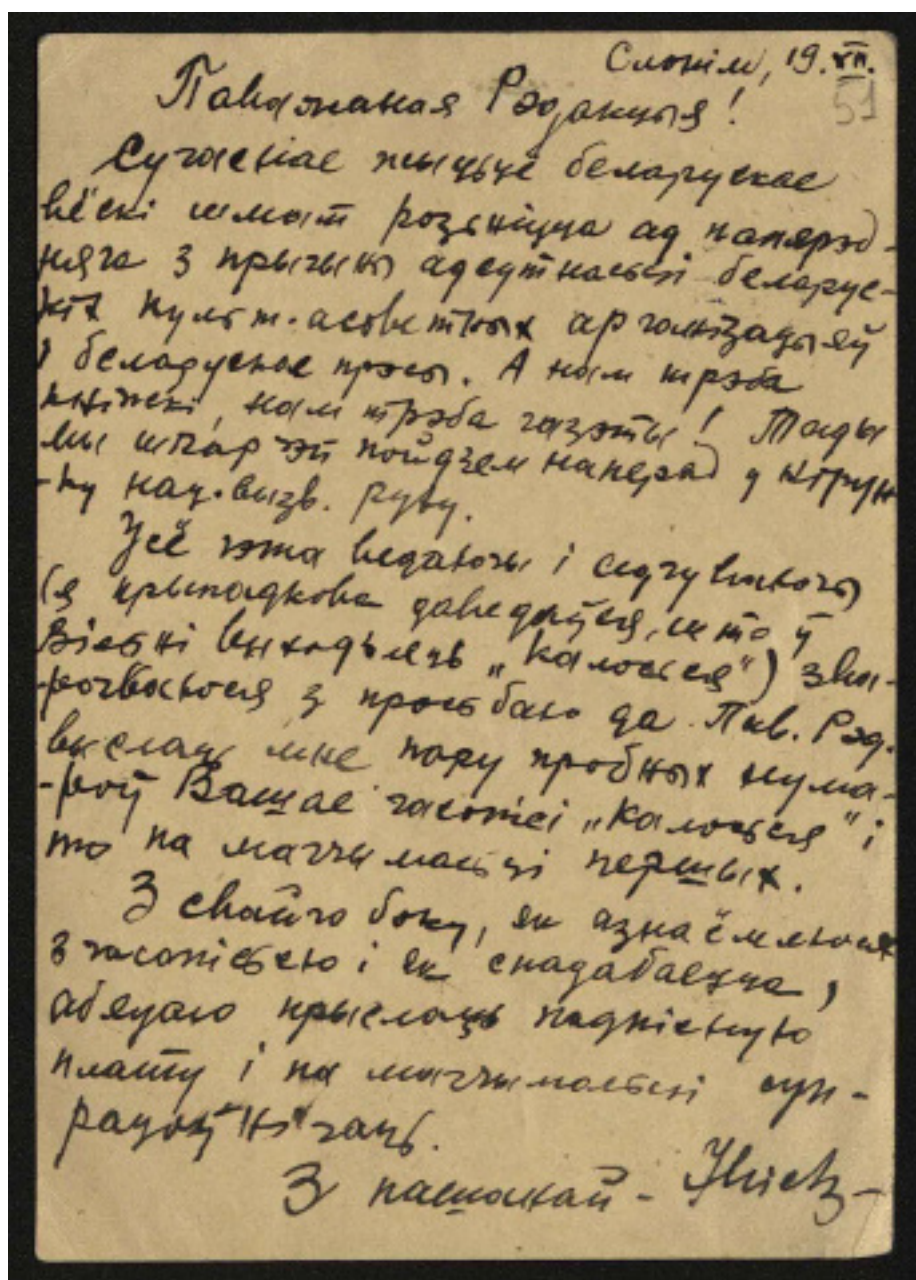 Слонім, 19.VII.
51
Паважаная Рэдакцыя!
Сучаснае жыцьцё беларускае
вёскі шмат розьніцца ад папярэд-
няга з прычыны адсутнасьці беларус-
кіх культ.-асветных арганізацыяў
і беларускае прэсы. А нам трэба
кніжкі, нам трэба газэты! Тады
мы шпарчэй пойдзем наперад у кірун-
-ку нац.-вызв. руху.
Усё гэта ведаючы і адчуваючы
(я прыпадкова даведаўся, што ў
Вільні выходзяць „Калосься") зва-
-рочваюся з просьбаю да Пав. Рэд.
выслаць мне пару пробных нума-
-роў Вашае часопісі „Калосься" і
то па магчымасьці першых.
З свайго боку, як азнаёмлюся
з часопісьсю і як спадабаецца,
абяцаю прыслаць падпісную
плату і па магчымасьці суп-
рацоўнічаць.
З пашанай -